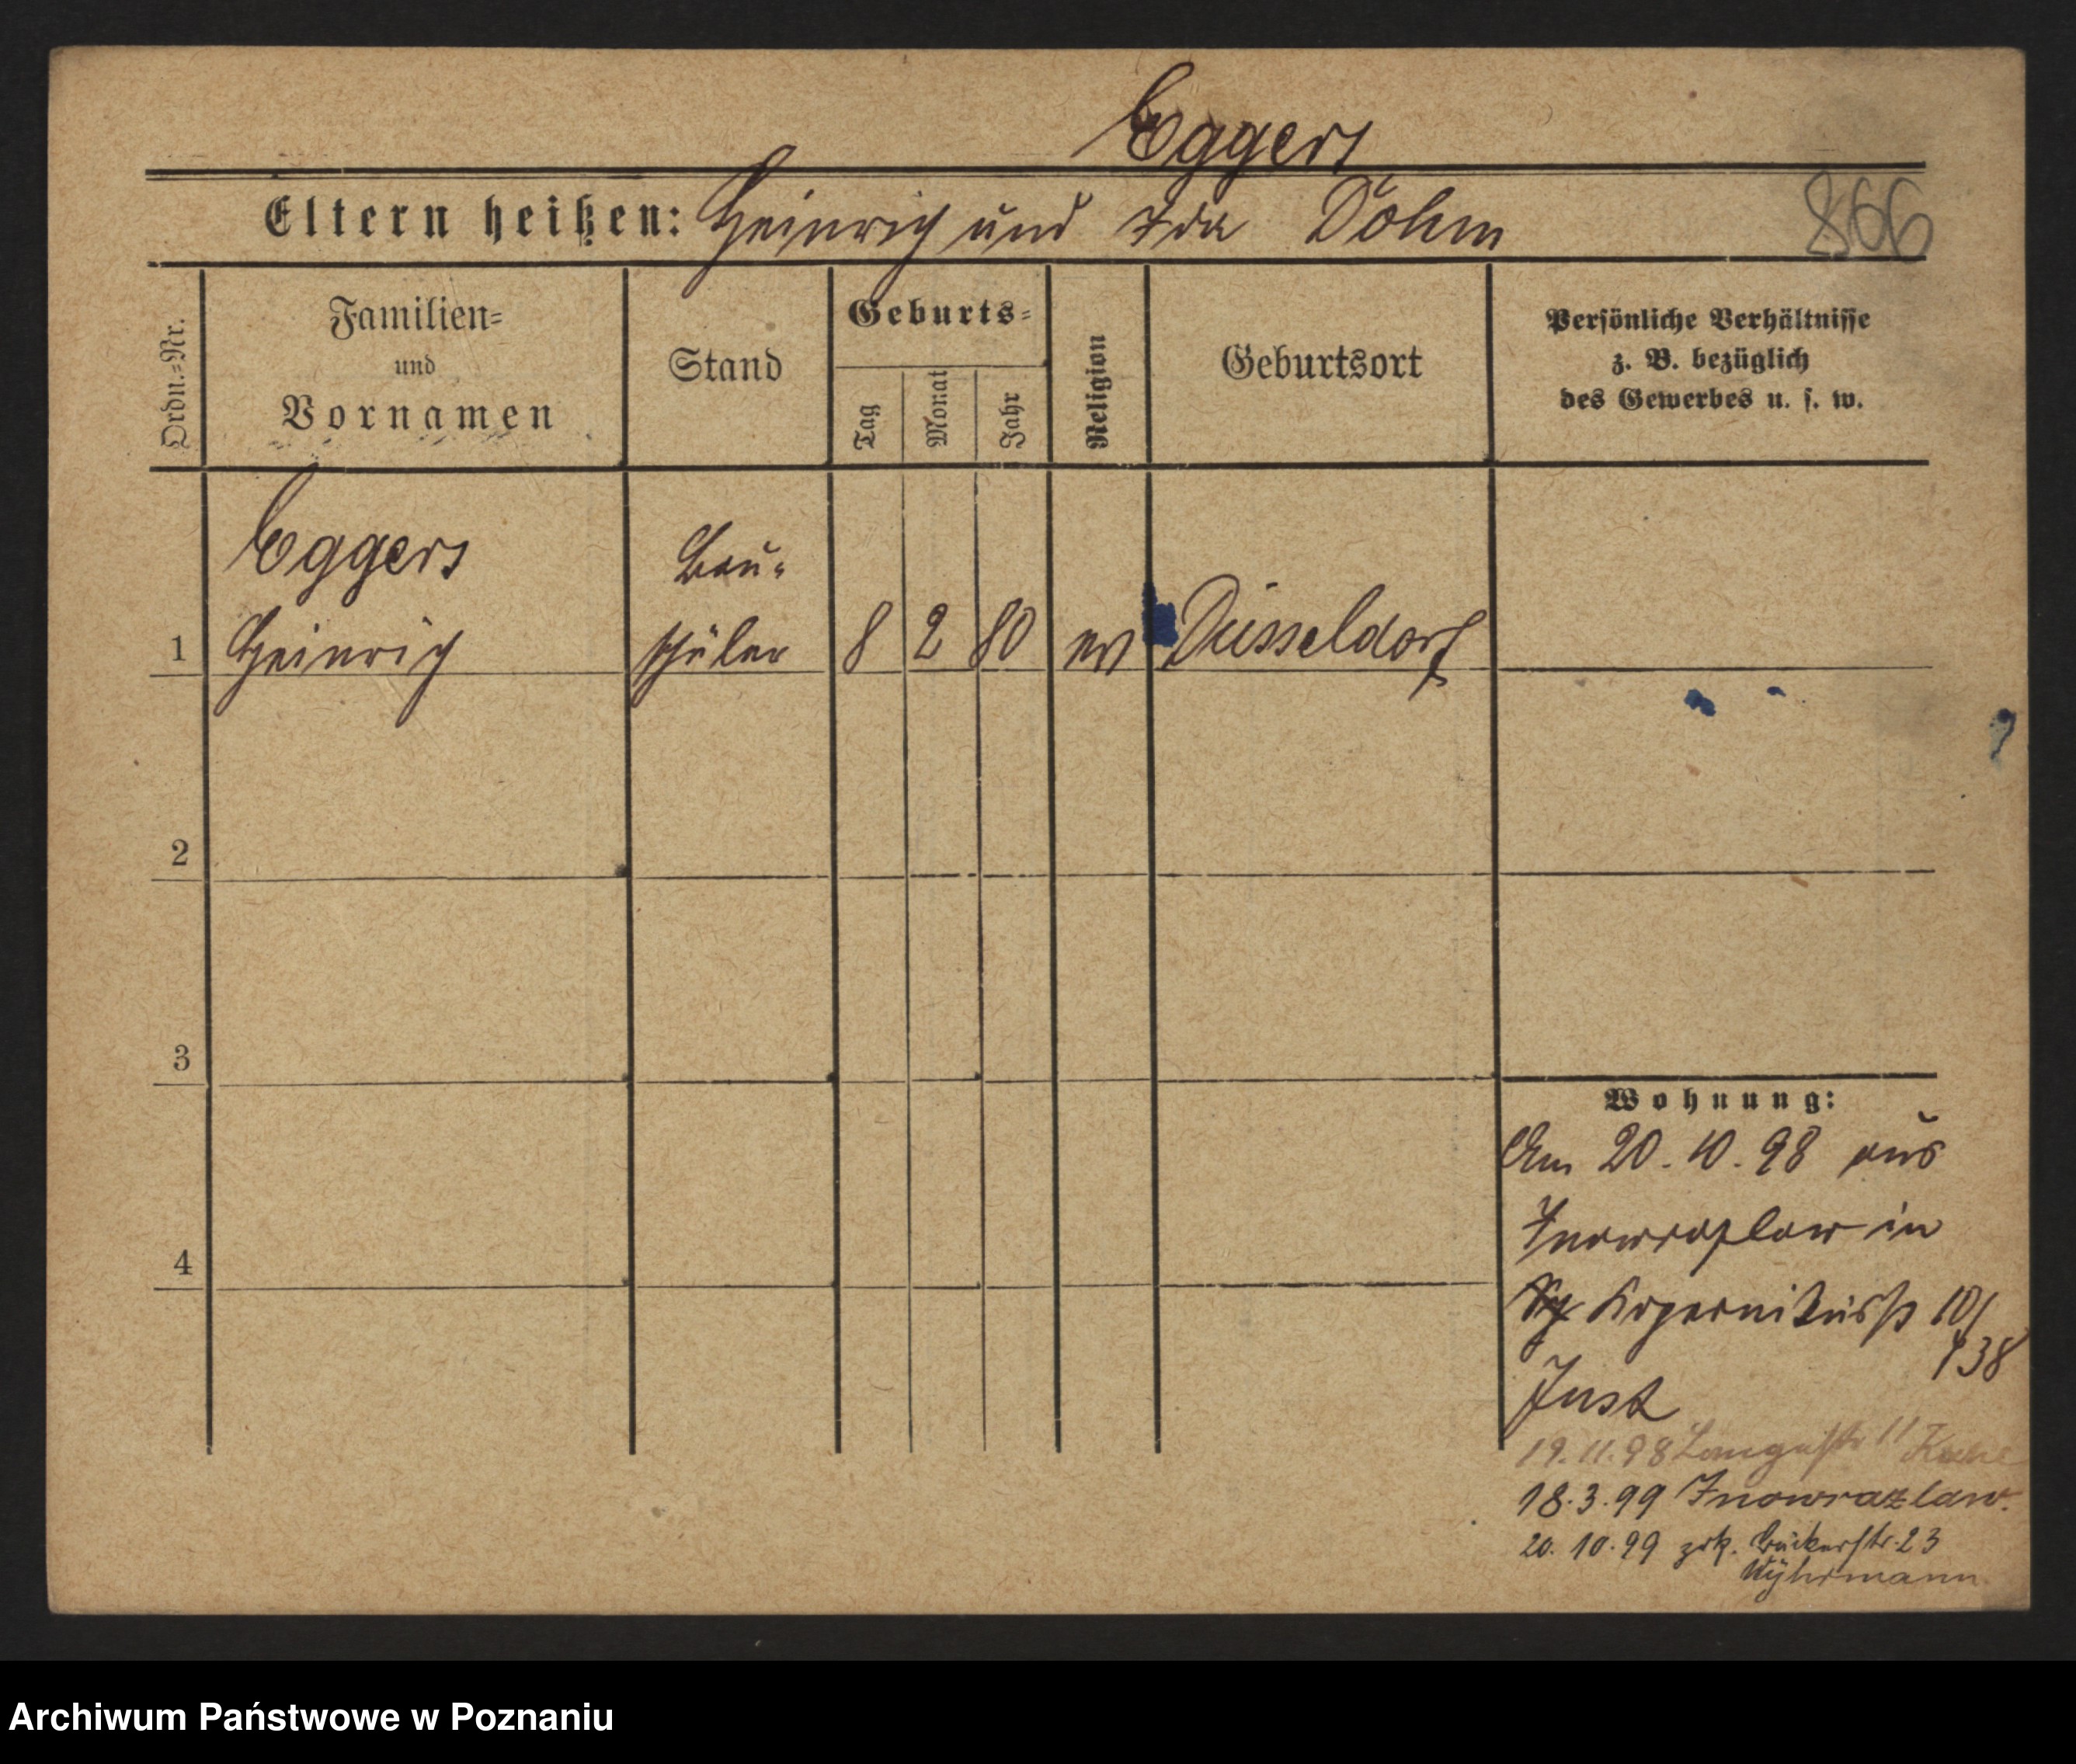 Eggers
Eltern heißen: Heinrich und Ida Döhm
866
Ordn.=Nr.
Familien=
und
Vornamen
Stand
Geburts=
Tag
Monat
Jahr
Religion
Geburtsort
Persönliche Verhältnisse
z. B. bezüglich
des Gewerbes u. s. w.
Eggers Bau-
1 Heinrich schüler 8 2 80 ev Düsseldorf
2
3
4
Wohnung:
Am 20.10.98 aus
Inowrazlaw in
Kopernikusstr 10/
Just
19.11.98 Langestr 11
18.3.99 Inowrazlaw.
20.10.99 zrk. Bäckerstr. 23
Archiwum Państwowe w Poznaniu